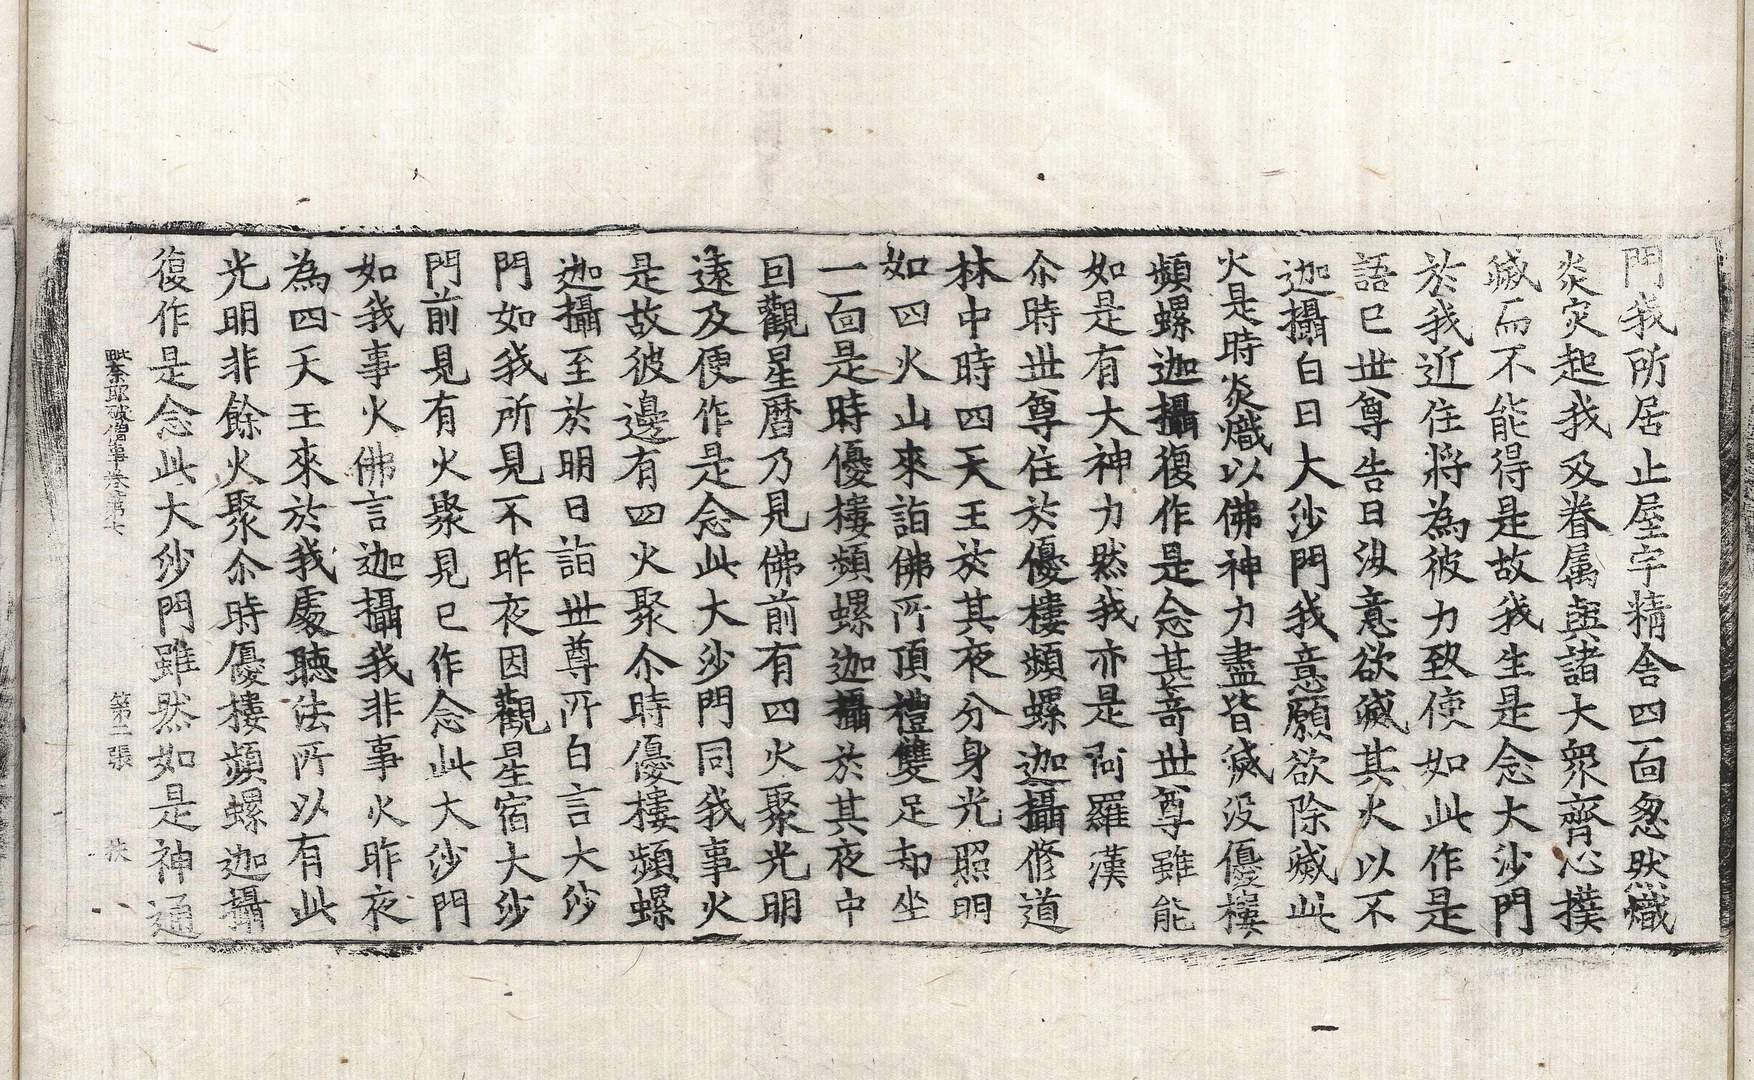 門我所居止屋宇精舍四面忽然熾
炎灾起我及眷属與諸大衆齊心撲
滅而不能得是故我生是念大沙門
於我近住将為彼力致使如此作是
語已世尊告曰汝意欲滅其火以不
迦攝白曰大沙門我意願欲除滅此
火是時炎熾以佛神力盡皆滅没優樓
頻螺迦攝復作是念甚奇世尊雖能
如是有大神力然我亦是阿羅漢
尒時世尊住於優樓頻螺迦攝修道
林中時四天王於其夜分身光照明
如四火山來詣佛所頂禮雙足却坐
一面是時優樓頻螺迦攝於其夜中
回觀星曆乃見佛前有四火聚光明
遠及便作是念此大沙門同我事火
是故彼邊有四火聚尒時優樓頻螺
迦攝至於明日詣世尊所白言大沙
門如我所見不昨夜因觀星宿大沙
門前見有火聚見已作念此大沙門
如我事火佛言迦攝我非事火昨夜
為四天王來於我處聽法所以有此
光明非餘火聚尒時優樓頻螺迦攝
復作是念此大沙門雖然如是神通
毗奈耶破僧事卷第七 第二張 枝